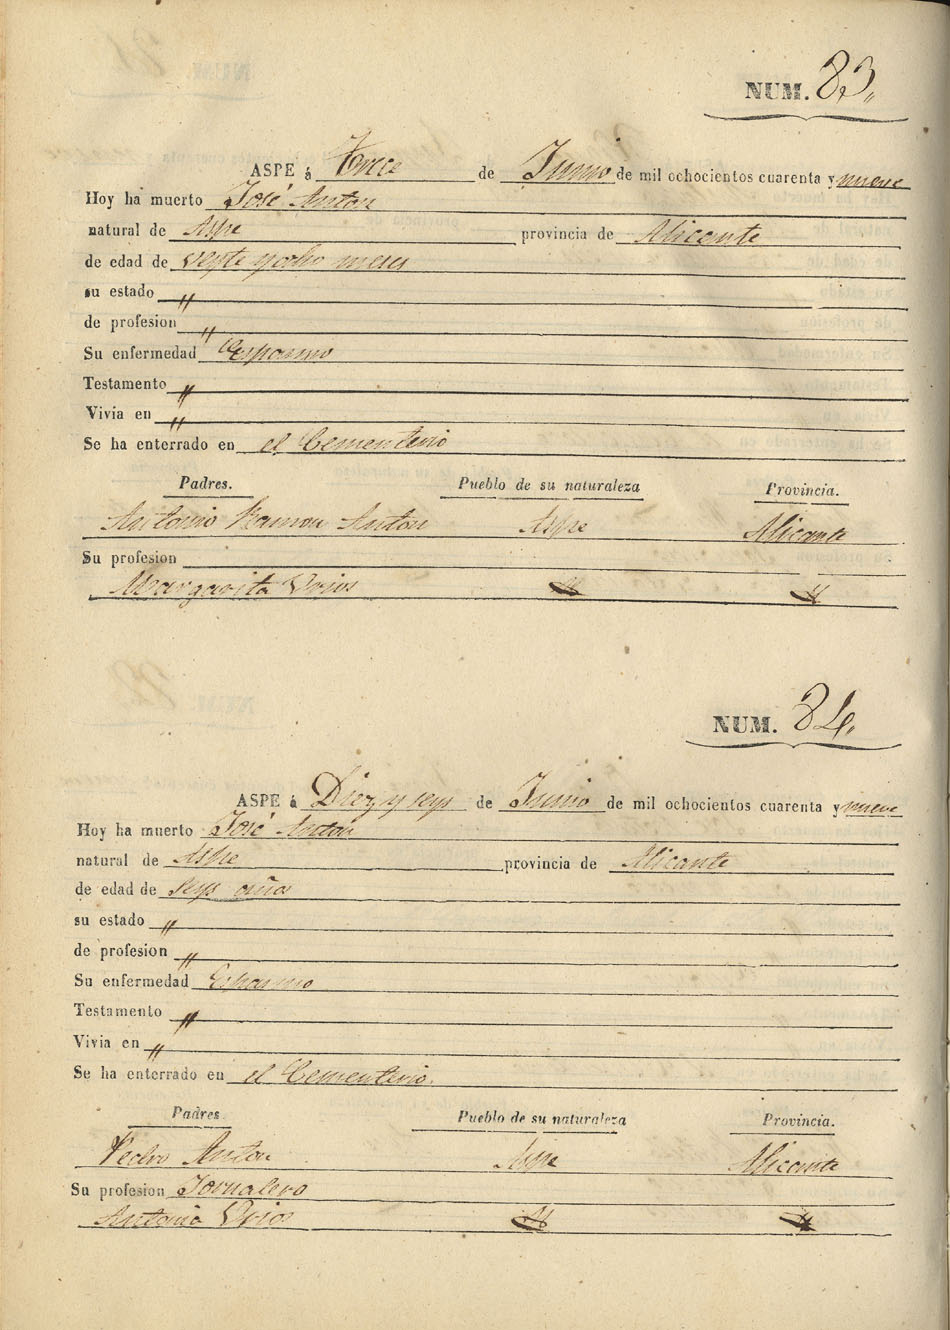 NUM. 83.
ASPE á Trece de Junio de mil ochocientos cuarenta y nueve
Hoy ha muerto José Anton
natural de Aspe provincia de Alicante
de edad de veyte y ocho meses
su estado "
de profesion "
Su enfermedad Espasmo
Testamento "
Vivia en "
Se ha enterrado en el Cementerio
Padres. Pueblo de su naturaleza Provincia.
Antonio Ramon Anton Aspe Alicante
Su profesion
Margarita Urios " "
NUM. 84.
ASPE á Diez y seys de Junio de mil ochocientos cuarenta y nueve
Hoy ha muerto José Anton
natural de Aspe provincia de Alicante
de edad de seys años
su estado "
de profesion "
Su enfermedad Espasmo
Testamento "
Vivia en "
Se ha enterrado en el Cementerio.
Padres. Pueblo de su naturaleza Provincia.
Pedro Anton Aspe Alicante
Su profesion Jornalero
Antonia Urios " "